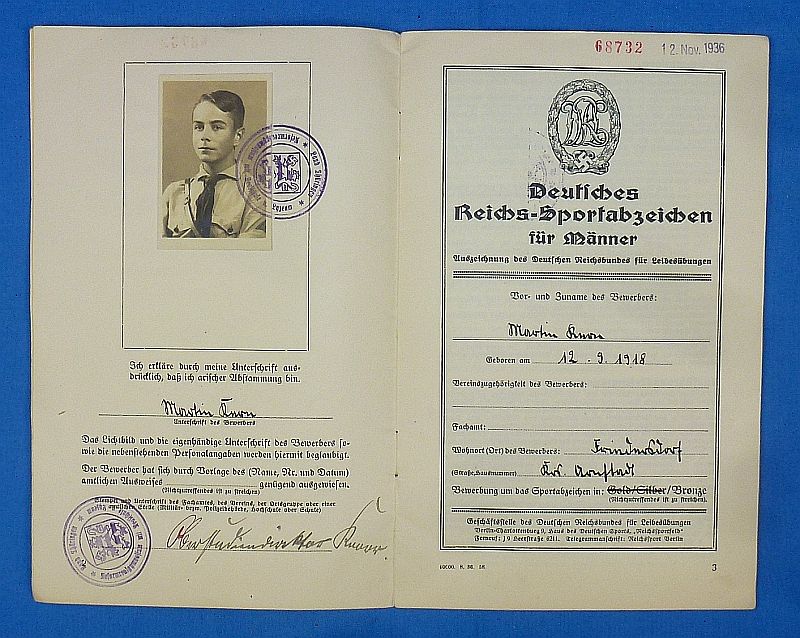 Ich erkläre durch meine Unterschrift aus-
drücklich, daß ich arischer Abstammung bin.
Martin Kern
Unterschrift des Bewerbers
Das Lichtbild und die eigenhändige Unterschrift des Bewerbers so-
wie die nebenstehenden Personalangaben werden hiermit beglaubigt.
Der Bewerber hat sich durch Vorlage des (Name, Nr. und Datum)
amtlichen Ausweises genügend ausgewiesen.
(Nichtzutreffendes ist zu streichen)
Stempel und Unterschrift des Fachamtes, des Vereins, der Ortsgruppe oder einer
Oberstudiendirektor
68732 12. Nov. 1936
Deutsches
Reichs-Sportabzeichen
für Männer
Auszeichnung des Deutschen Reichsbundes für Leibesübungen
Vor- und Zuname des Bewerbers:
Martin Kern
Geboren am 12. 9. 1918
Vereinszugehörigkeit des Bewerbers:
Fachamt:
Wohnort (Ort) des Bewerbers: Friedersdorf
(Straße, Hausnummer) Krs. Arnstadt
Bewerbung um das Sportabzeichen in: Gold/Silber/Bronze
(Nichtzutreffendes ist zu streichen)
Geschäftsstelle des Deutschen Reichsbundes für Leibesübungen
Berlin-Charlottenburg 9, Haus des Deutschen Sports, „Reichssportfeld"
Fernruf: J 9 Heerstraße 6211. Telegrammanschrift: Reichssport Berlin
3